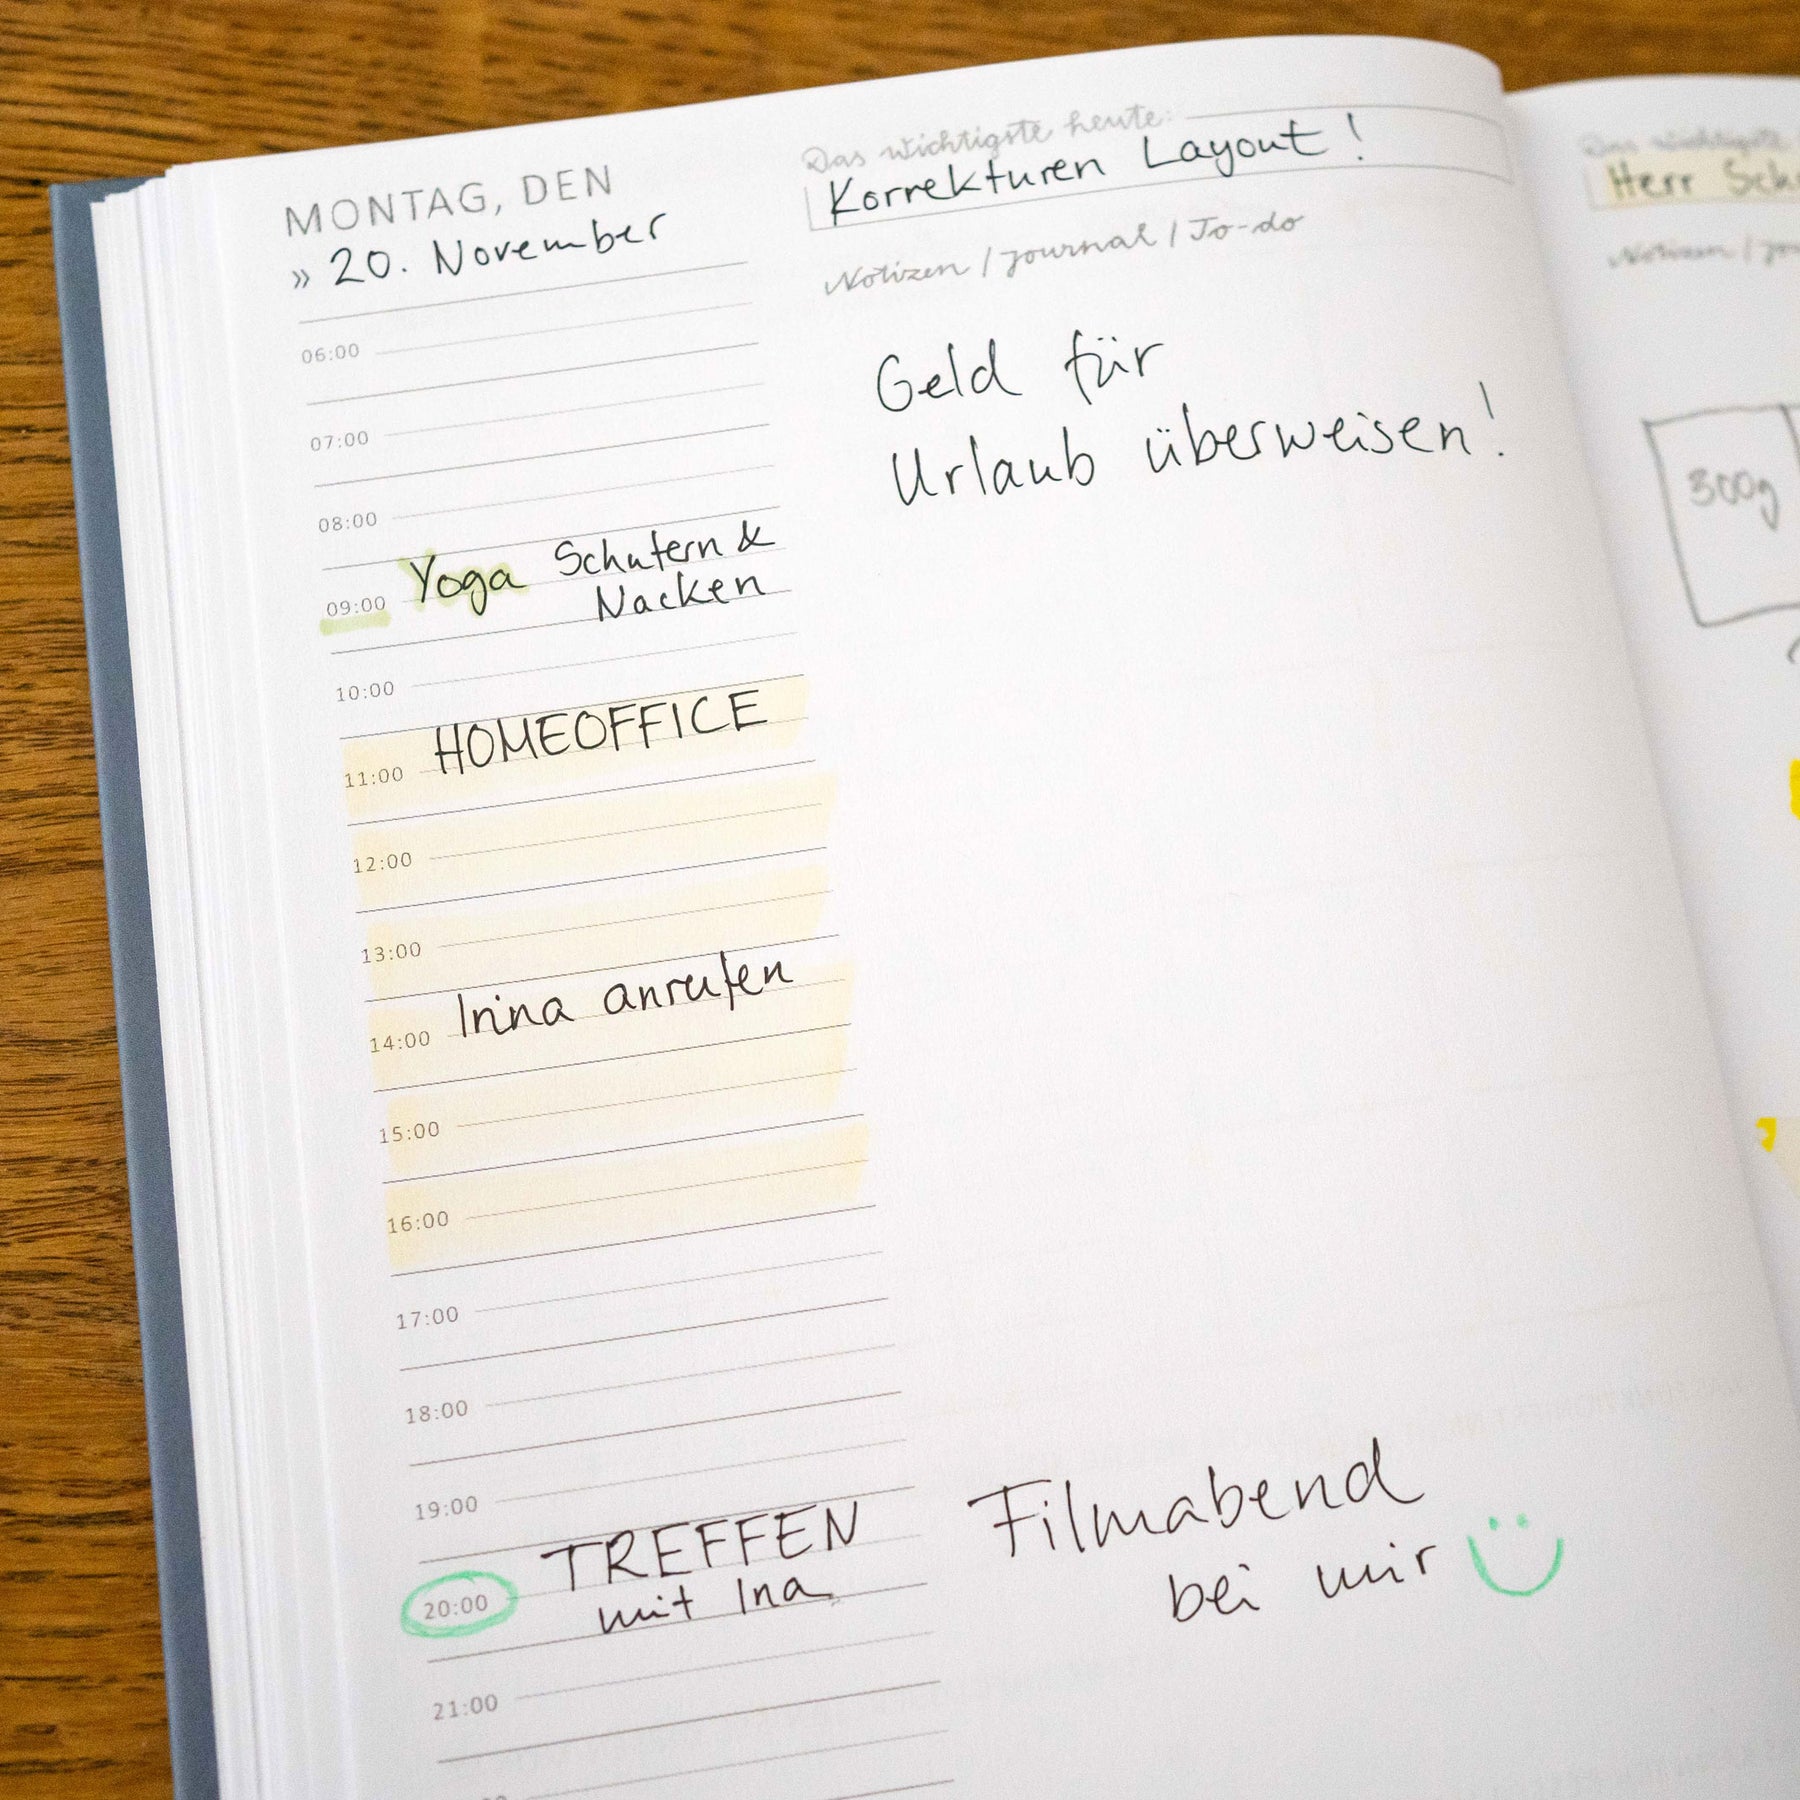 MONTAG, DEN
» 20. November
06:00
07:00
08:00
09:00 Yoga Schutern &
Nacken
10:00
11:00 HOMEOFFICE
12:00
13:00
14:00 Irina anrufen
15:00
16:00
17:00
18:00
19:00
20:00 TREFFEN
mit Ina
21:00
Das wichtigste heute:
Korrekturen Layout!
Notizen / Journal / To-do
Geld für
Urlaub überweisen!
Filmabend
bei mir
Das wichtigste
Herr
Notizen /
300g